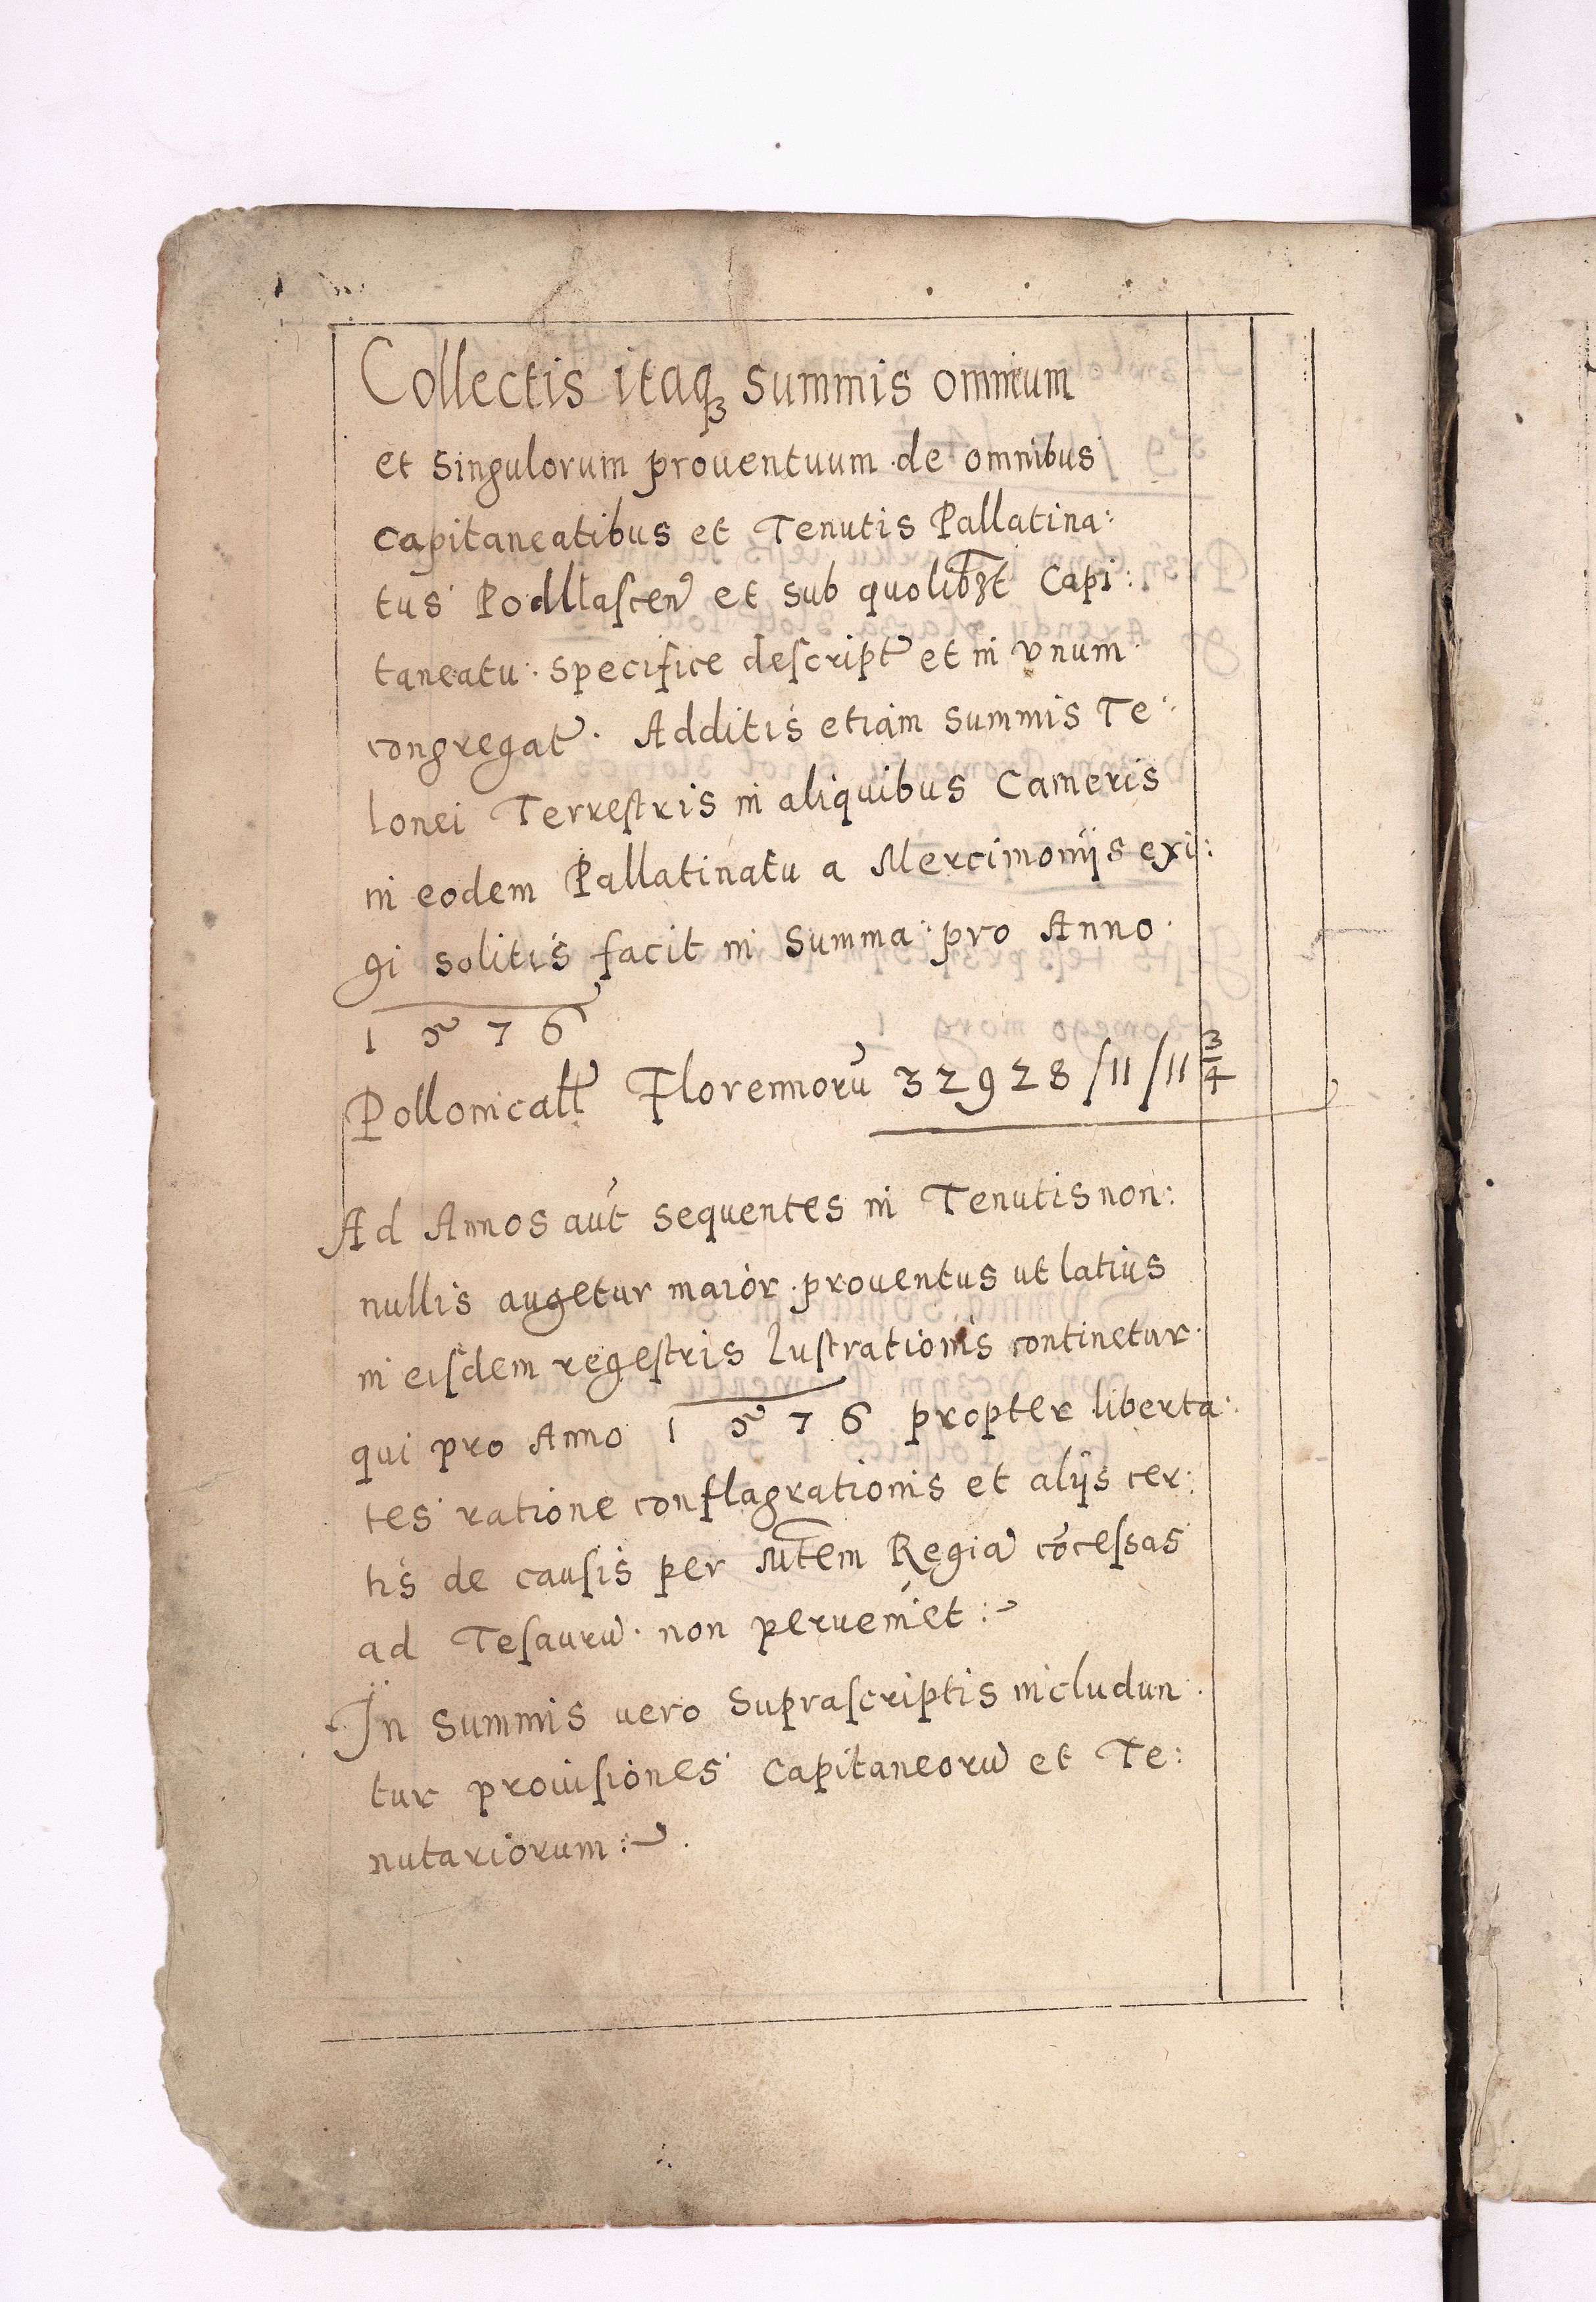 Collectis itaqꝫ summis omnium
et Singulorum prouentuum de omnibus
capitaneatibus et Tenutis Pallatina:
tus Podllasceñ et sub quolibꝫt Capi:
taneatu. Specifice descript et in vnum
congregat. Additis etiam Summis Te:
lonei Terrestris in aliquibus Cameris
in eodem Pallatinatu a Mercimoniis exi:
gi solitis facit in Summa pro Anno
1576
Pollonicall Florennorū 32928/11/11 3/4
Ad Annos aut sequentes in Tenutis non:
nullis augetur maior prouentus ut latius
in eisdem regestris lustrationis continetur
qui pro Anno 1576 propter liberta:
tes ratione conflagrationis et aliis cer:
tis de causis per Mtem Regia cōcessas
ad Tesaurū non perueniet :~
In Summis vero Suprascriptis includun
tur prouisiones Capitaneorū et Te:
nutariorum :~